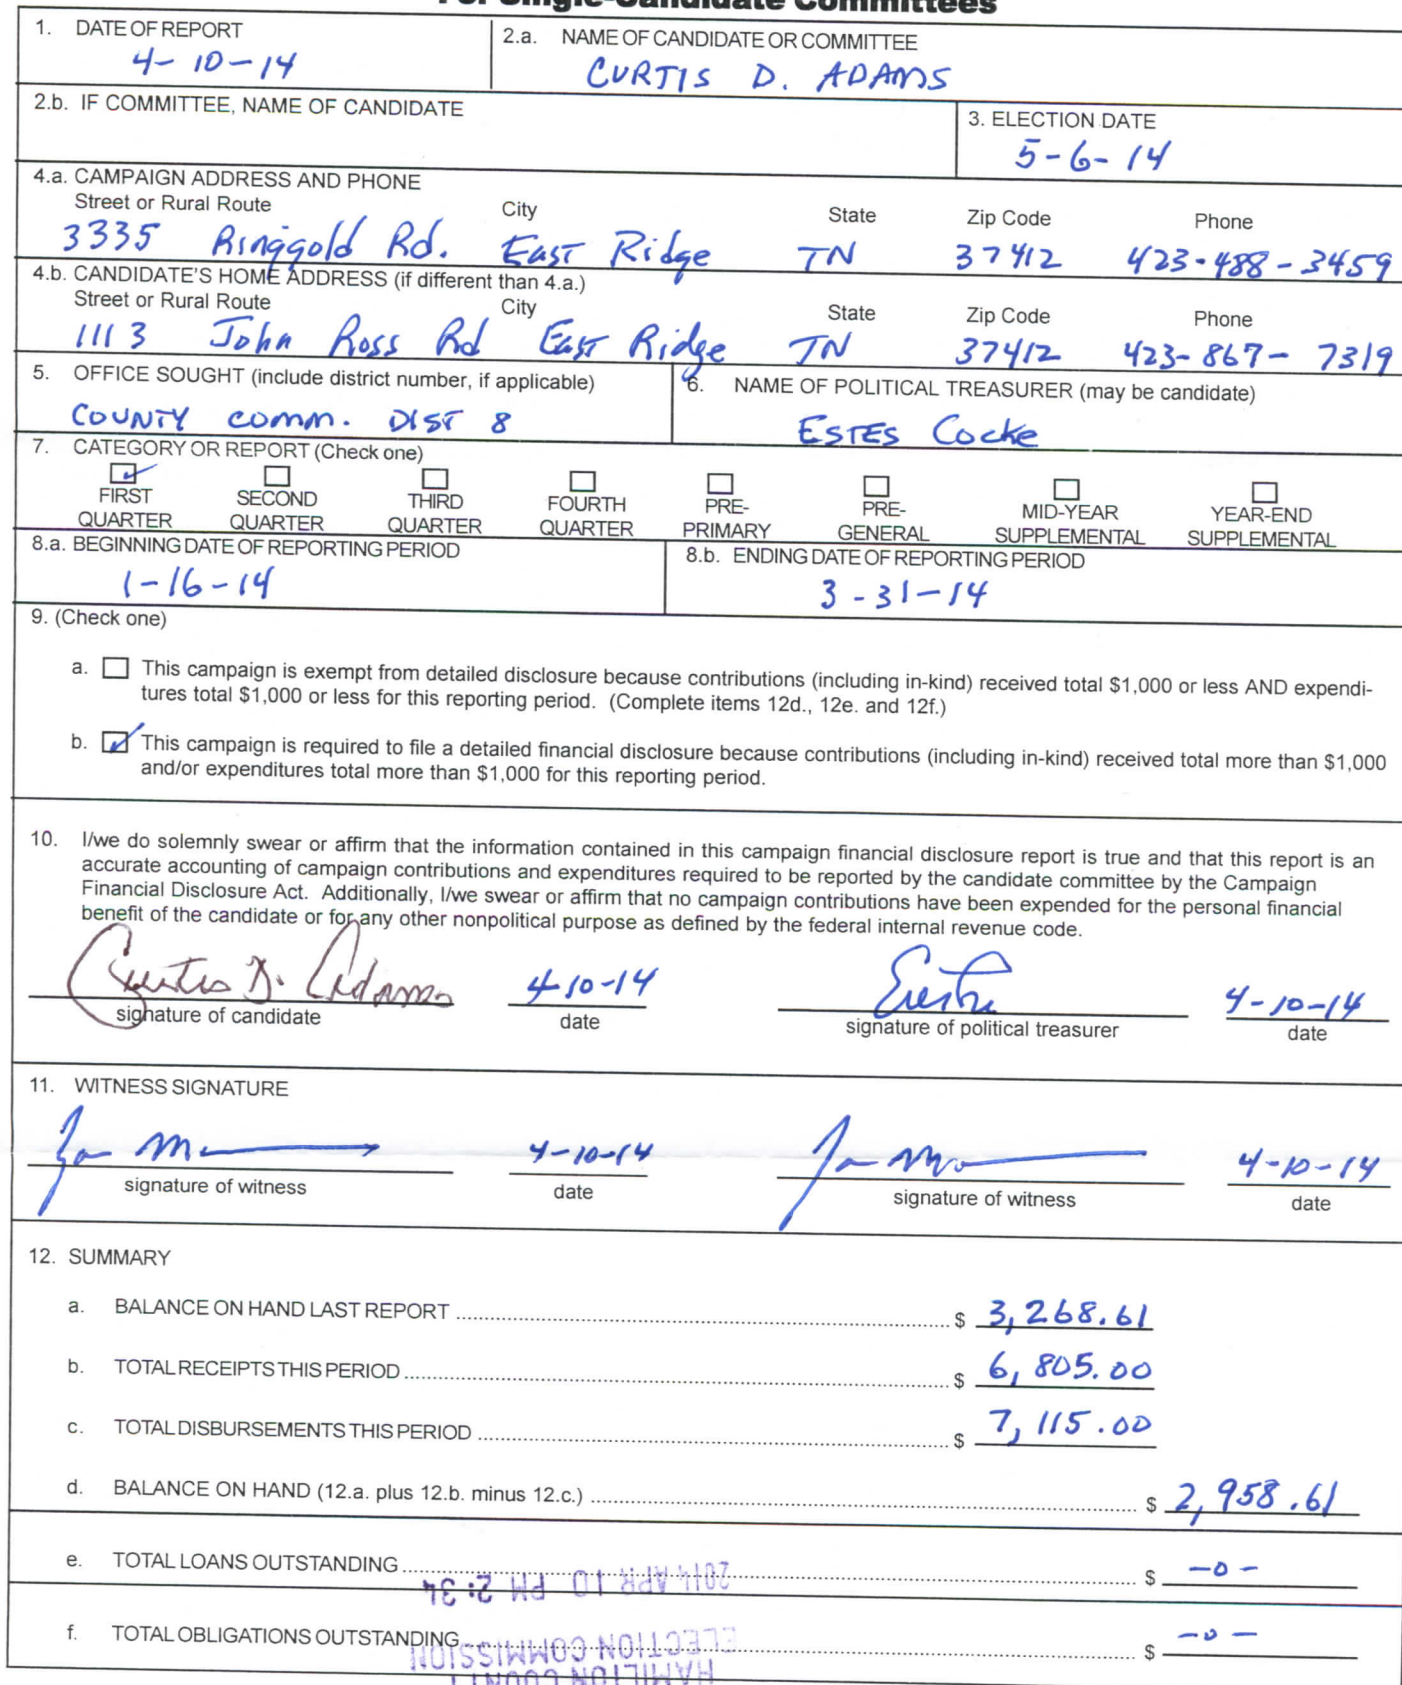 For Single-Candidate Committees
1. DATE OF REPORT
4-10-14
2.a. NAME OF CANDIDATE OR COMMITTEE
CURTIS D. ADAMS
2.b. IF COMMITTEE, NAME OF CANDIDATE
3. ELECTION DATE
5-6-14
4.a. CAMPAIGN ADDRESS AND PHONE
Street or Rural Route City State Zip Code Phone
3335 Ringgold Rd. East Ridge TN 37412 423-488-3459
4.b. CANDIDATE'S HOME ADDRESS (if different than 4.a.)
Street or Rural Route City State Zip Code Phone
1113 John Ross Rd East Ridge TN 37412 423-867-7319
5. OFFICE SOUGHT (include district number, if applicable)
COUNTY COMM. DIST 8
6. NAME OF POLITICAL TREASURER (may be candidate)
ESTES Cocke
7. CATEGORY OR REPORT (Check one)
FIRST QUARTER
SECOND QUARTER
THIRD QUARTER
FOURTH QUARTER
PRE-PRIMARY
PRE-GENERAL
MID-YEAR SUPPLEMENTAL
YEAR-END SUPPLEMENTAL
8.a. BEGINNING DATE OF REPORTING PERIOD
1-16-14
8.b. ENDING DATE OF REPORTING PERIOD
3-31-14
9. (Check one)
a. This campaign is exempt from detailed disclosure because contributions (including in-kind) received total $1,000 or less AND expendi-
tures total $1,000 or less for this reporting period. (Complete items 12d., 12e. and 12f.)
b. This campaign is required to file a detailed financial disclosure because contributions (including in-kind) received total more than $1,000
and/or expenditures total more than $1,000 for this reporting period.
10. I/we do solemnly swear or affirm that the information contained in this campaign financial disclosure report is true and that this report is an
accurate accounting of campaign contributions and expenditures required to be reported by the candidate committee by the Campaign
Financial Disclosure Act. Additionally, I/we swear or affirm that no campaign contributions have been expended for the personal financial
benefit of the candidate or for any other nonpolitical purpose as defined by the federal internal revenue code.
Curtis D. Adams 4-10-14 4-10-14
signature of candidate date signature of political treasurer date
11. WITNESS SIGNATURE
4-10-14 4-10-14
signature of witness date signature of witness date
12. SUMMARY
a. BALANCE ON HAND LAST REPORT $ 3,268.61
b. TOTAL RECEIPTS THIS PERIOD $ 6,805.00
c. TOTAL DISBURSEMENTS THIS PERIOD $ 7,115.00
d. BALANCE ON HAND (12.a. plus 12.b. minus 12.c.) $ 2,958.61
e. TOTAL LOANS OUTSTANDING $ -0-
2014 APR 10 PM 2:34
f. TOTAL OBLIGATIONS OUTSTANDING $ -0-
ELECTION COMMISSION
HAMILTON COUNTY